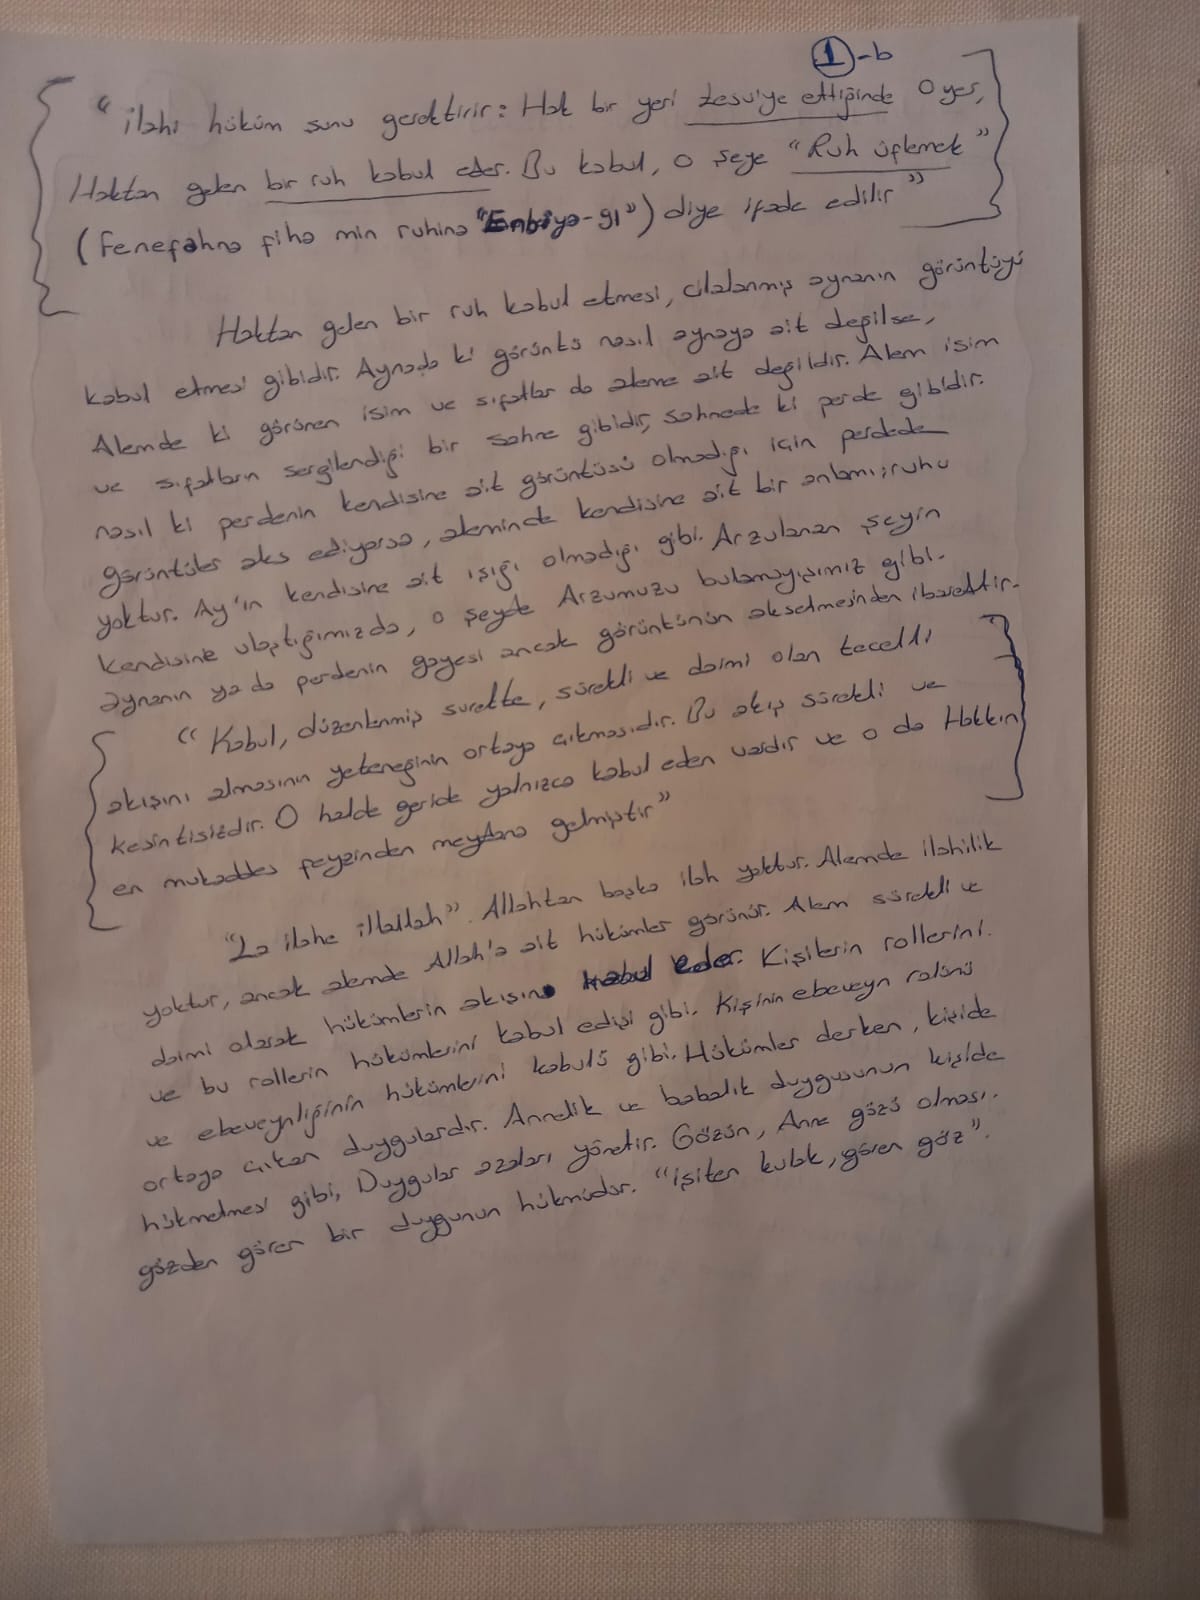 1-b
"ilahi hüküm şunu gerektirir: Hak bir yeri tesviye ettiğinde O yer,
Haktan gelen bir ruh kabul eder. Bu kabul, o şeye "Ruh üflemek"
(Fenefahna fiha min ruhina "Enbiya-91") diye ifade edilir"
Haktan gelen bir ruh kabul etmesi, cilalanmış aynanın görüntüyü
kabul etmesi gibidir. Aynada ki görüntü nasıl aynaya ait değilse,
Alemde ki görünen isim ve sıfatlar da aleme ait değildir. Alem isim
ve sıfatların sergilendiği bir sahne gibidir, sahnede ki perde gibidir.
nasıl ki perdenin kendisine ait görüntüsü olmadığı için perdede
görüntüler aks ediyorsa, aleminde kendisine ait bir anlamı, ruhu
yoktur. Ay'ın kendisine ait ışığı olmadığı gibi. Arzulanan şeyin
kendisine ulaştığımızda, o şeyde Arzumuzu bulamayışımız gibi.
aynanın ya da perdenin gayesi ancak görüntünün aksetmesinden ibarettir.
"Kabul, düzenlenmiş surette, sürekli ve daimi olan tecelli
akışını almasının yeteneğinin ortaya çıkmasıdır. Bu akış sürekli ve
kesintisizdir. O halde geride yalnızca kabul eden vardır ve o da Hakkın
en mukaddes feyzinden meydana gelmiştir"
"La ilahe illallah". Allahtan başka ilah yoktur. Alemde ilahilik
yoktur, ancak alemde Allah'a ait hükümler görünür. Alem sürekli ve
daimi olarak hükümlerin akışını kabul eder. Kişilerin rollerini.
ve bu rollerin hükümlerini kabul edişi gibi. Kişinin ebeveyn rolünü
ve ebeveynliğinin hükümlerini kabulü gibi. Hükümler derken, kişide
ortaya çıkan duygulardır. Annelik ve babalık duygusunun kişide
hükmetmesi gibi, Duygular azaları yönetir. Gözün, Anne gözü olması.
gözden gören bir duygunun hükmüdür. "işiten kulak, gören göz".